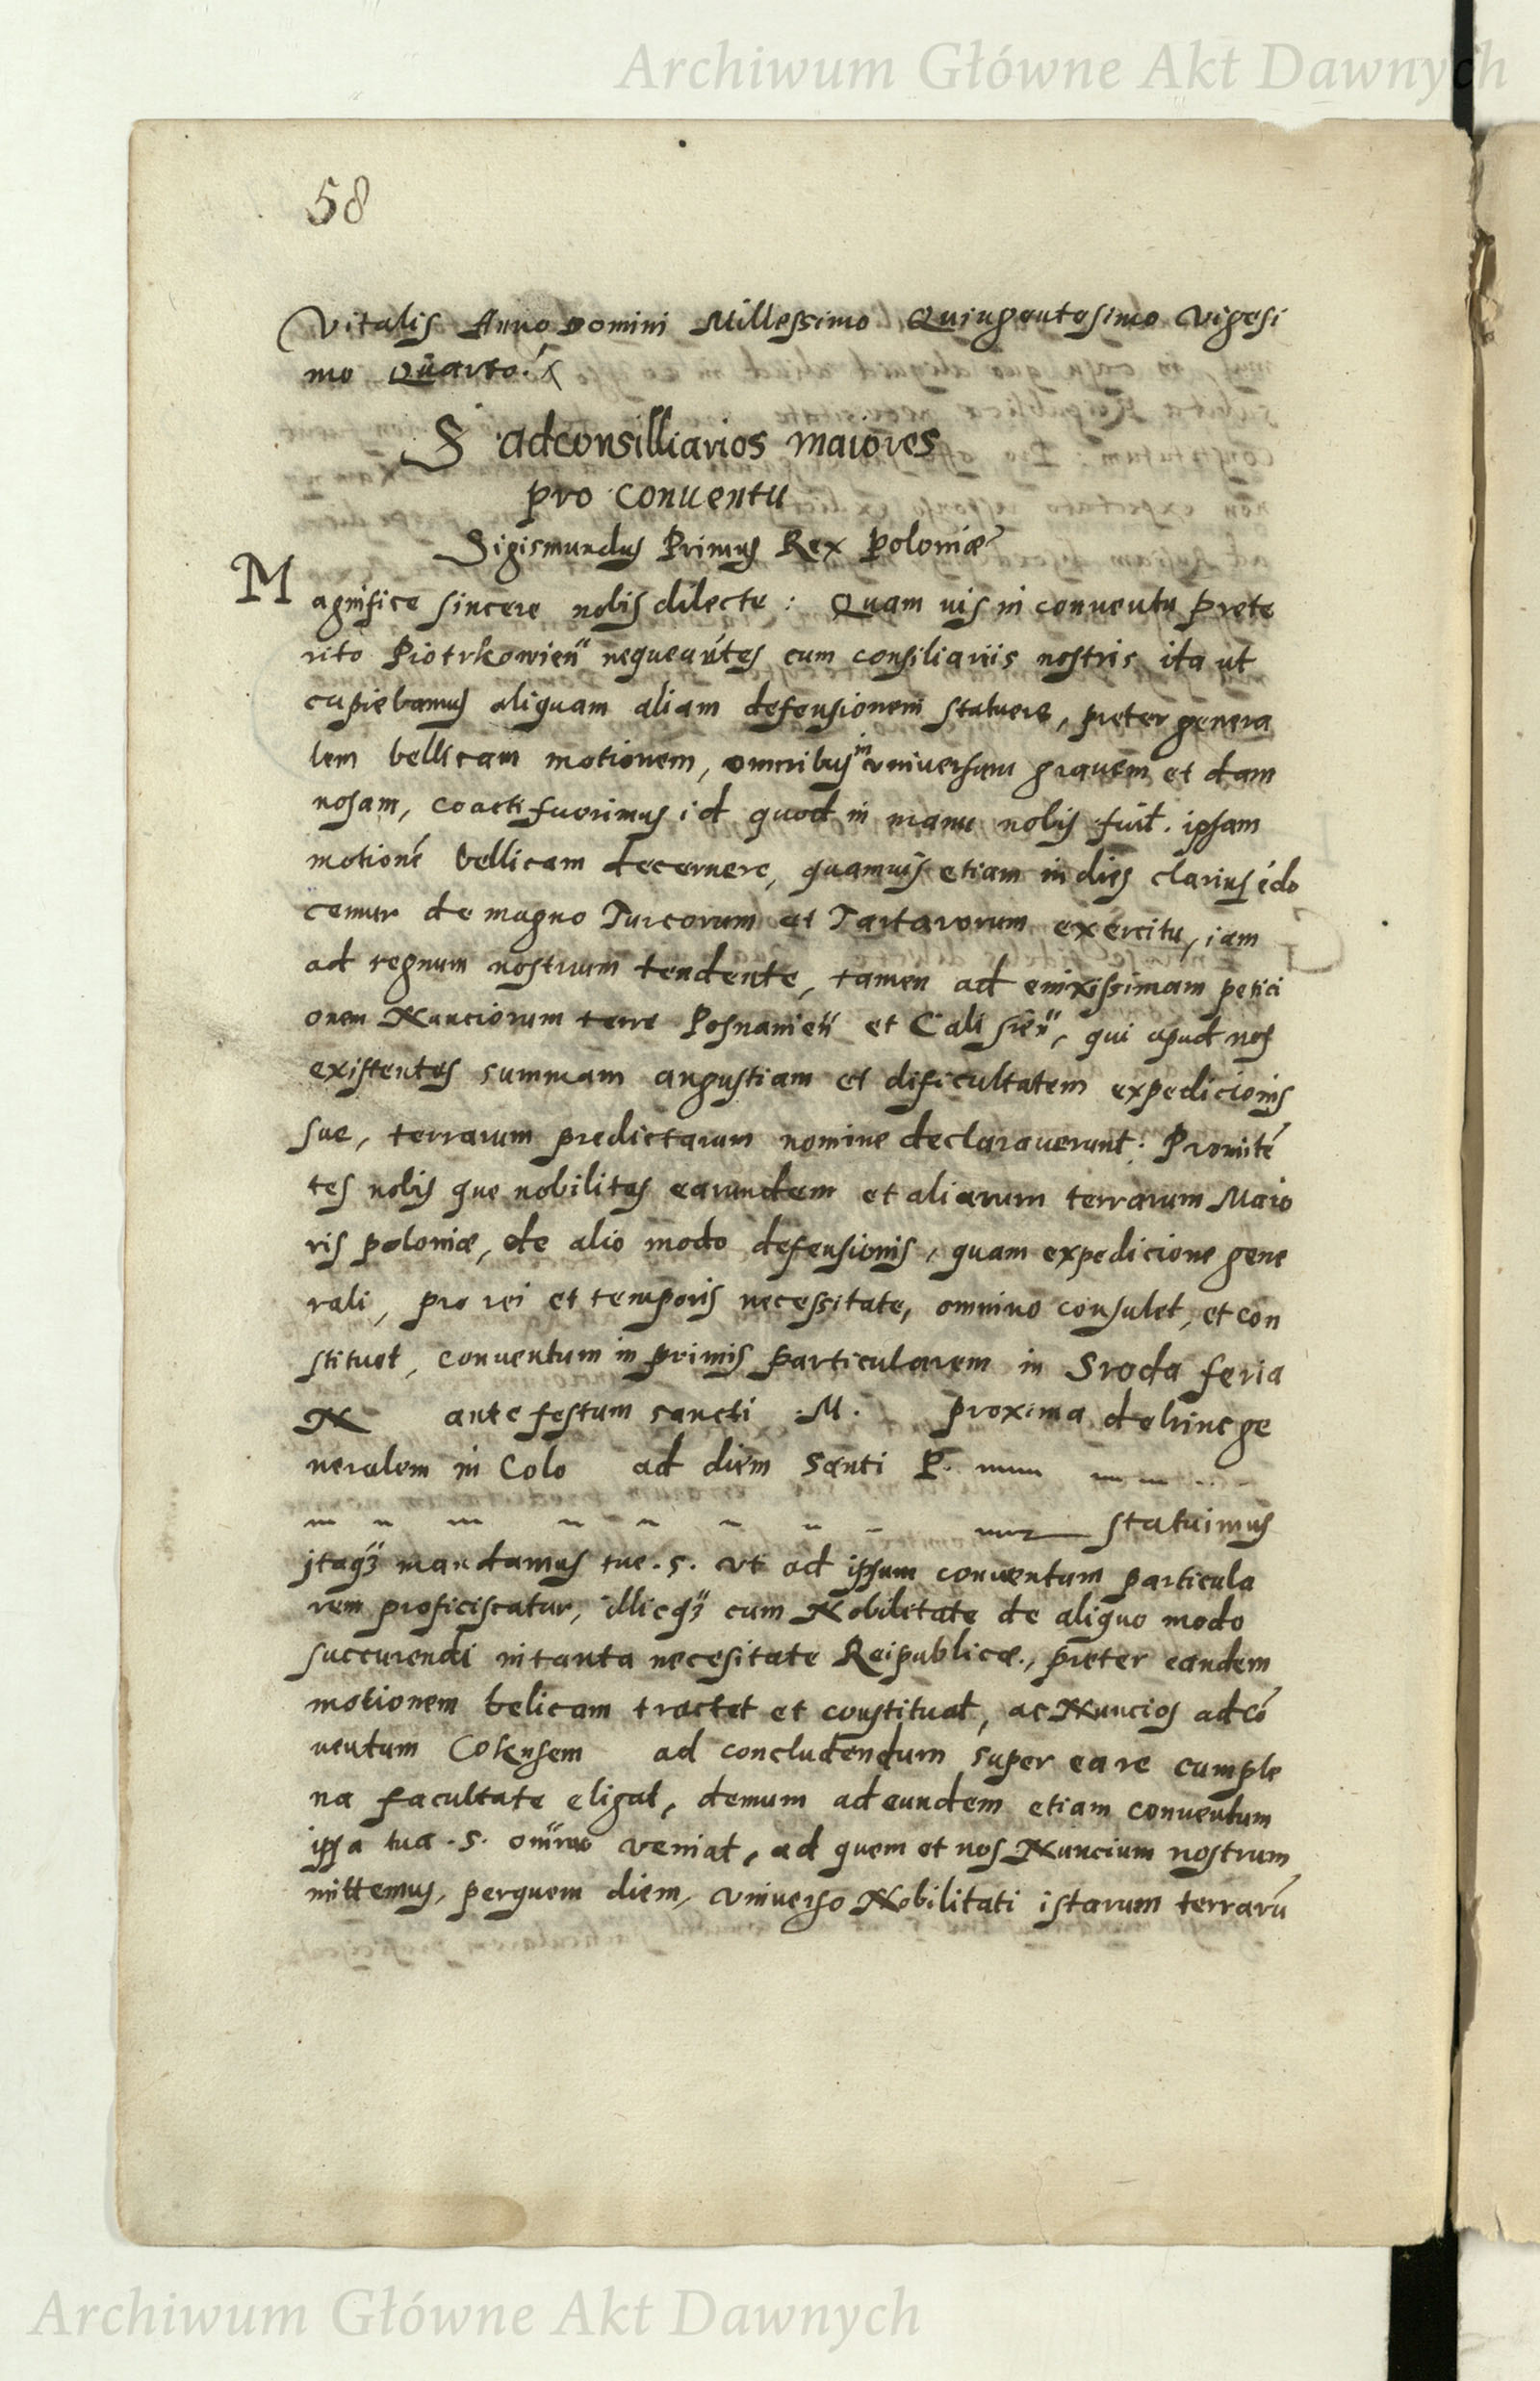 Archiwum Główne Akt Dawnych
58
Vitalis Anno Domini Millessimo Quingentesimo Vigesi
mo Quarto.
S adconsilliarios maiores
pro conuentu
Sigismundus Primus Rex Poloniæ
Magnifice sincere nobis dilecte: Quam uis in conuentu prete
rito Piotrkowień nequeuntes cum consiliariis nostris ita ut
cupiebamus aliquam aliam defensionem statuere, preter genera
lem bellicam motionem, omnibus in vniuersum grauem et dam
nosam, coacti fuerimus id quod in manu nobis fuit. ipsam
motioné bellicam decernere, quamuis etiam in dies clarius edo
cemur de magno Turcorum et Tartarorum exercitu, iam
ad regnum nostrum tendente, tamen ad enixissimam petici
onem Nunciorum terre Posnanień et Calisień, qui apud nos
existentes summam angustiam et dificultatem expedicionis
sue, terrarum predictarum nomine declarauerunt: Promité
tes nobis que nobilitas earundem et aliarum terrarum Maio
ris poloniæ, de alio modo defensionis, quam expedicione gene
rali, pro rei et temporis necessitate, omnino consulet, et con
stituet, conuentum in primis particularem in Sroda feria
N ante festum sancti .M. proxima dehinc ge
neralem in Colo ad diem Santi P.
statuimus
itaq3 mandamus tue .s. vt ad ipsum conuentum particula
rem proficiscatur, illicq3 cum Nobilitate de aliquo modo
succurendi in tanta necesitate Reipublicæ, preter eandem
motionem belicam tractet et constituat, ac Nuncios ad có
uentum Colensem ad concludendum super ea re cum ple
na facultate eligat, demum ad eundem etiam conuentum
ipsa tua .s. omino veniat, ad quem et nos Nuncium nostrum
mittemus, per quem diem, vniuerso Nobilitati istarum terrarú
Archiwum Główne Akt Dawnych